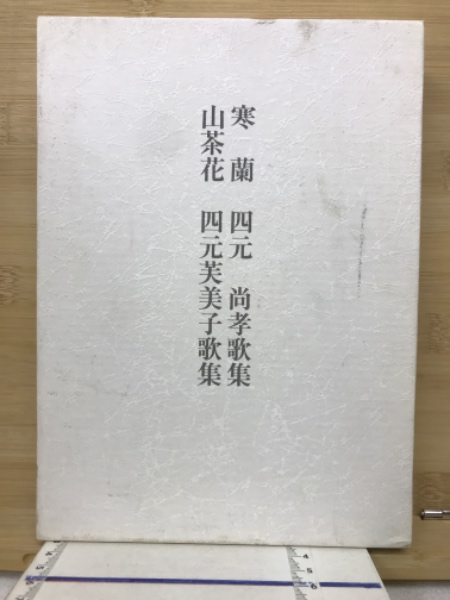 寒蘭 四元 尚孝歌集
山茶花 四元芙美子歌集
4
5
6